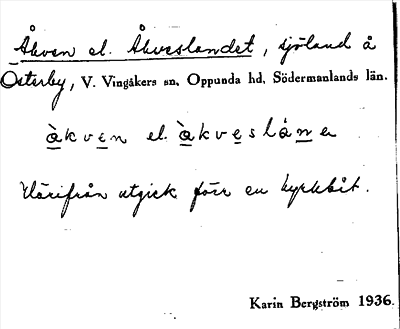 Åkven el. Åkveslandet, sjöland å
Österby, V. Vingåkers sn, Oppunda hd, Södermanlands län.
àkven el. àkveslåne
Härifrån utgick förr en kyrkbåt.
Karin Bergström 1936.